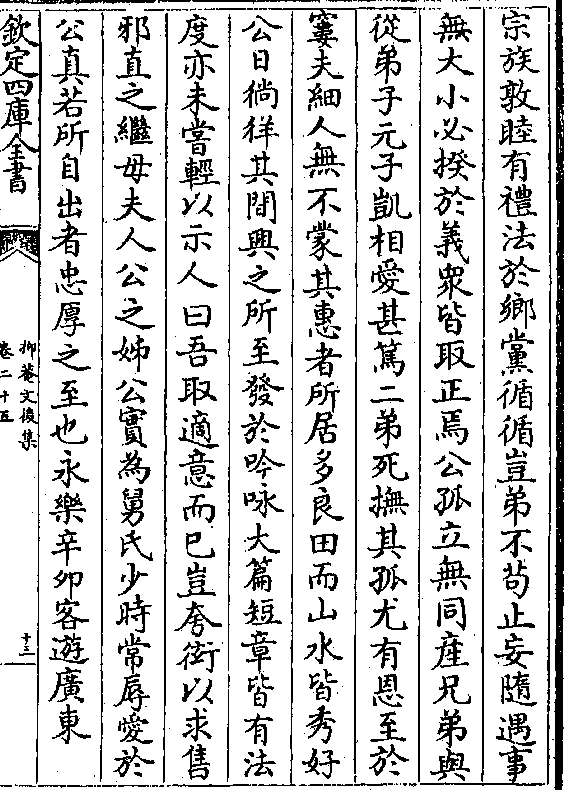 宗族敦睦有禮法於鄉黨循循豈弟不苟止妄隨遇事
無大小必揆於義衆皆取正焉公孤立無同産兄弟與
從弟子元子凱相愛甚篤二弟死撫其孤尤有恩至於
窶夫細人無不蒙其惠者所居多良田而山水皆秀好
公日徜徉其間興之所至發於吟咏大篇短章皆有法
度亦未嘗輕以示人曰吾取適意而已豈夸衒以求售
邪直之繼母夫人公之姊公實為舅氏少時常辱愛於
公真若所自出者忠厚之至也永樂辛卯客遊廣東
欽定四庫全書
抑菴文後集
卷二十五
十三